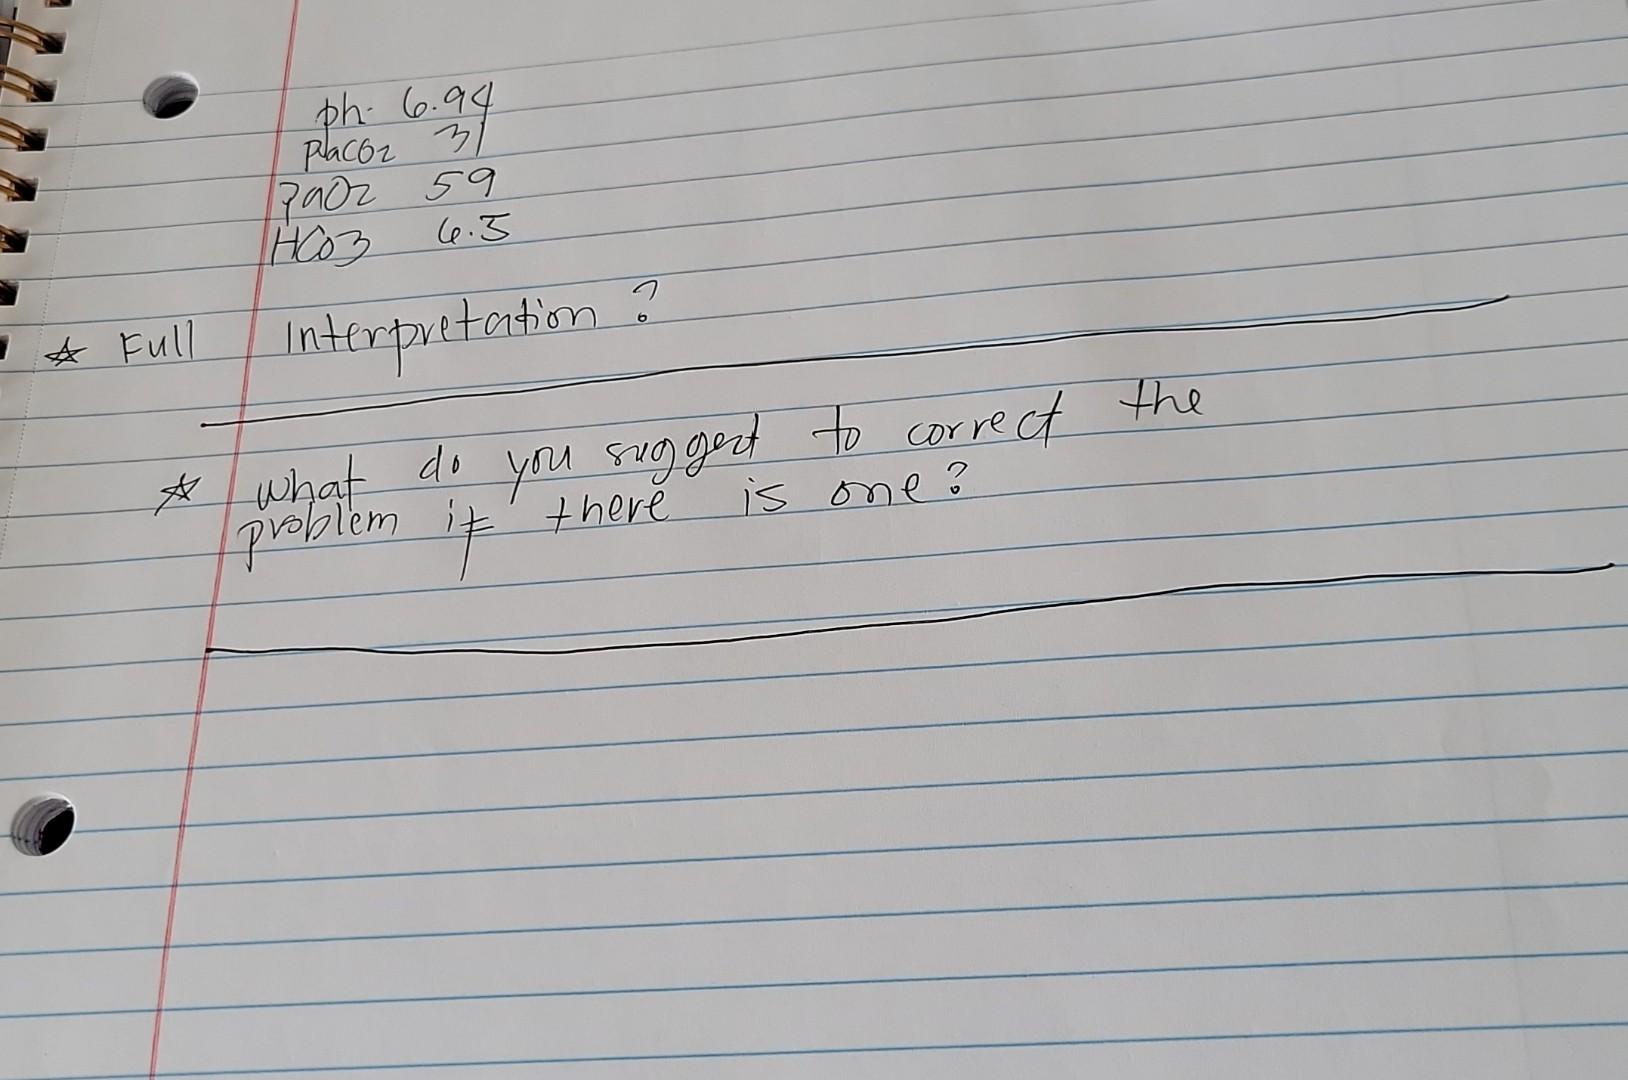 ph. 6.94
PaCO2 31
PaO2 59
HCO3 6.5
☆ Full Interpretation?
☆ what do you suggest to correct the
problem if there is one?